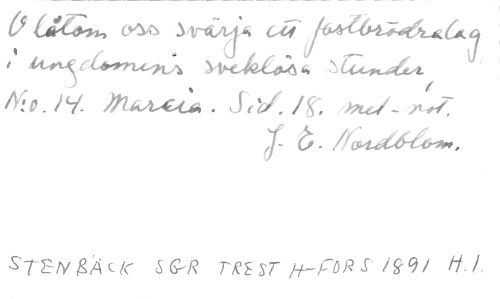 O låtom oss svärja ett fostbrödralag
i ungdomens sveklösa stunder,
N:o. 14. Marcia. Sid. 18. mel-not.
J. E. Nordblom.
STENBÄCK SGR TREST H-FORS 1891 H.1.